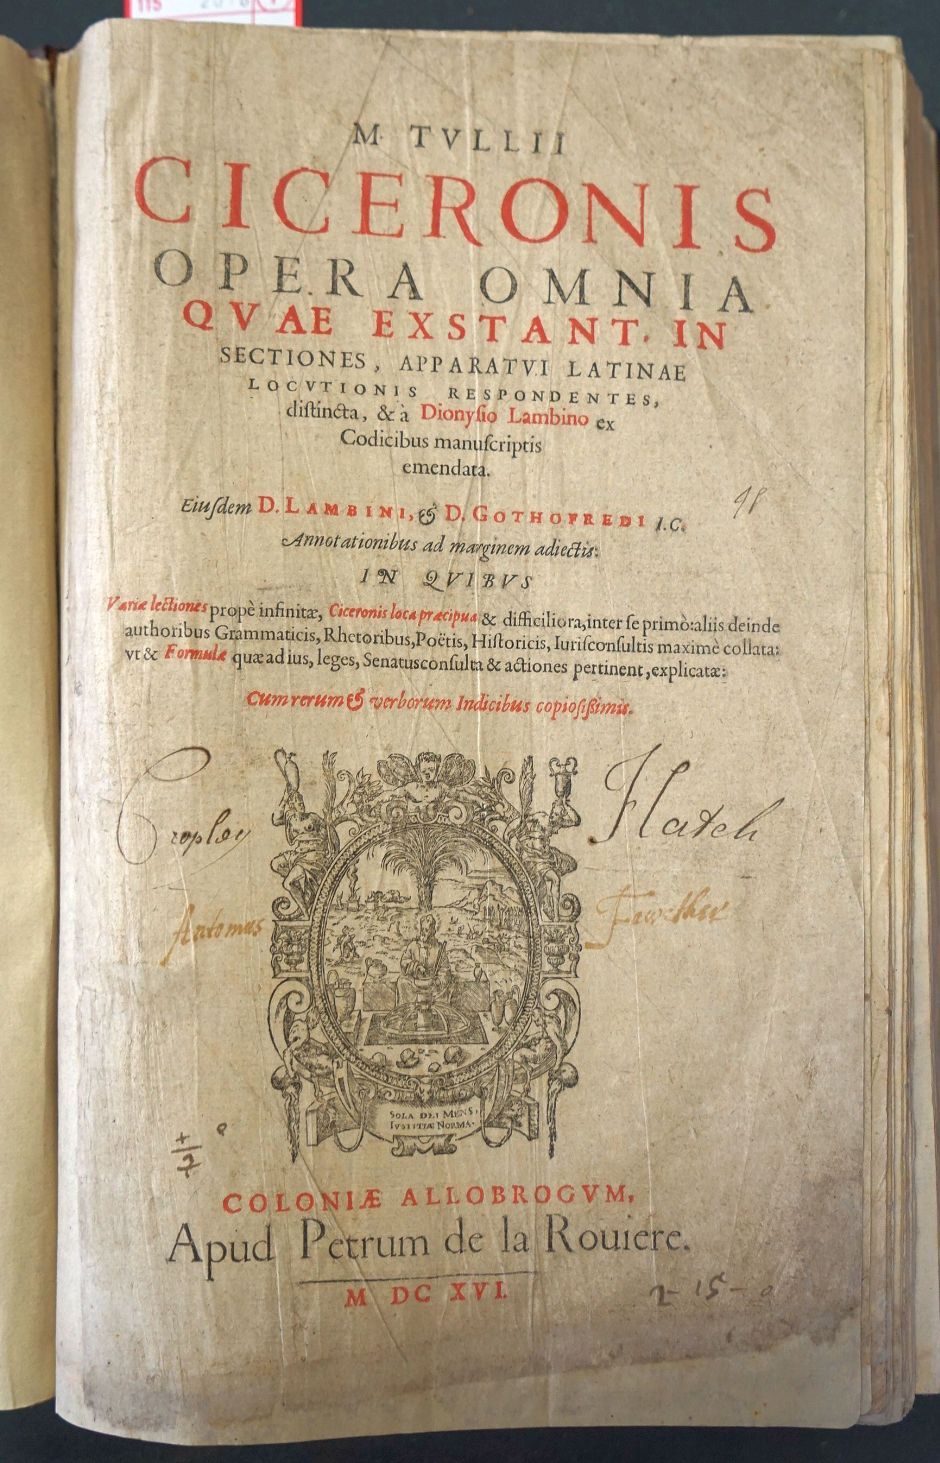 M. TVLLII
CICERONIS
OPERA OMNIA
QVAE EXSTANT. IN
SECTIONES, APPARATVI LATINAE
LOCVTIONIS RESPONDENTES,
diſtincta, & à Dionyſio Lambino ex
Codicibus manuſcriptis
emendata.
Eiuſdem D. LAMBINI, & D. GOTHOFREDI I.C.
Annotationibus ad marginem adiectis:
IN QVIBVS
Variæ lectiones propè infinitæ, Ciceronis loca præcipua & difficiliora, inter ſe primò: aliis deinde
authoribus Grammaticis, Rhetoribus, Poëtis, Hiſtoricis, Iuriſconſultis maximè collata:
vt & Formulæ quæ ad ius, leges, Senatusconſulta & actiones pertinent, explicatæ:
Cum rerum & verborum Indicibus copioſiſſimis.
Cropley Hatch
Antomus
SOLA DEI MENS,
IVSTITIÆ NORMA.
COLONIÆ ALLOBROGVM,
Apud Petrum de la Rouiere.
M DC XVI.
2-15-0